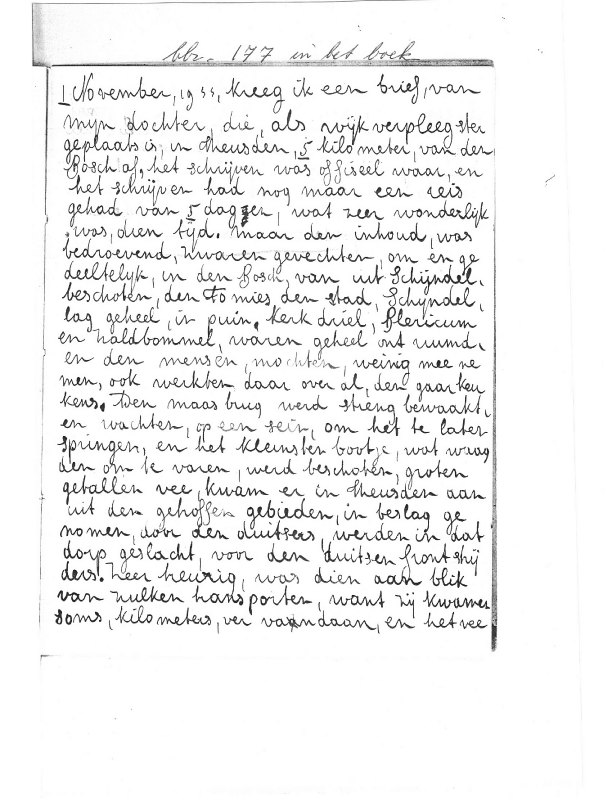 blz. 177 in het boek
1 November, 1944, kreeg ik een brief, van
mijn dochter, die, als wijk verpleegster
geplaats is, in Heusden, 5 kilo meter, van den
Bosch af, het schrijven was offiseel waar, en
het schrijven had nog maar een reis
gehad van 5 dagen, wat zeer wonderlijk
was, dien tijd. Maar den inhoud, was
bedroevend, zwaren gevechten, om en ge
deeltelyk, in den Bosch, van uit Schijndel,
beschoten, den Tomies, den stad, Schyndel,
lag geheel, in puin, Kerk driel, Blericum
en Zaldbommel, waren geheel ont ruimd,
en den mensen, mochten, weinig mee ne
men, ook werkten daar over al, den gaar keu
kens. Den maas brug werd streng bewaakt,
en wachten, op een sein, om het te laten
springen, en het kleinsten bootje, wat waag
den om te varen, werd beschoten, groten
getallen vee, kwam er in Heusden aan
uit den getroffen gebieden, in beslag ge
nomen, door den duitsers, werden in dat
dorp geslacht, voor den duitsen front strij
ders. Zeer treurig, was dien aan blik
van zulken transporten, want zij kwamen
soms, kilo meters, ver vandaan, en het vee